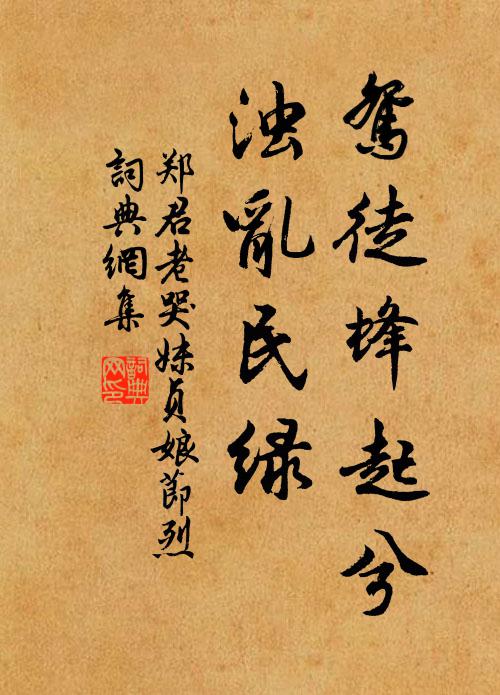 鴛徒蜂起兮
浊亂民绿
郑君老哭妹貞娘節烈
詞典網集
詞典
网印